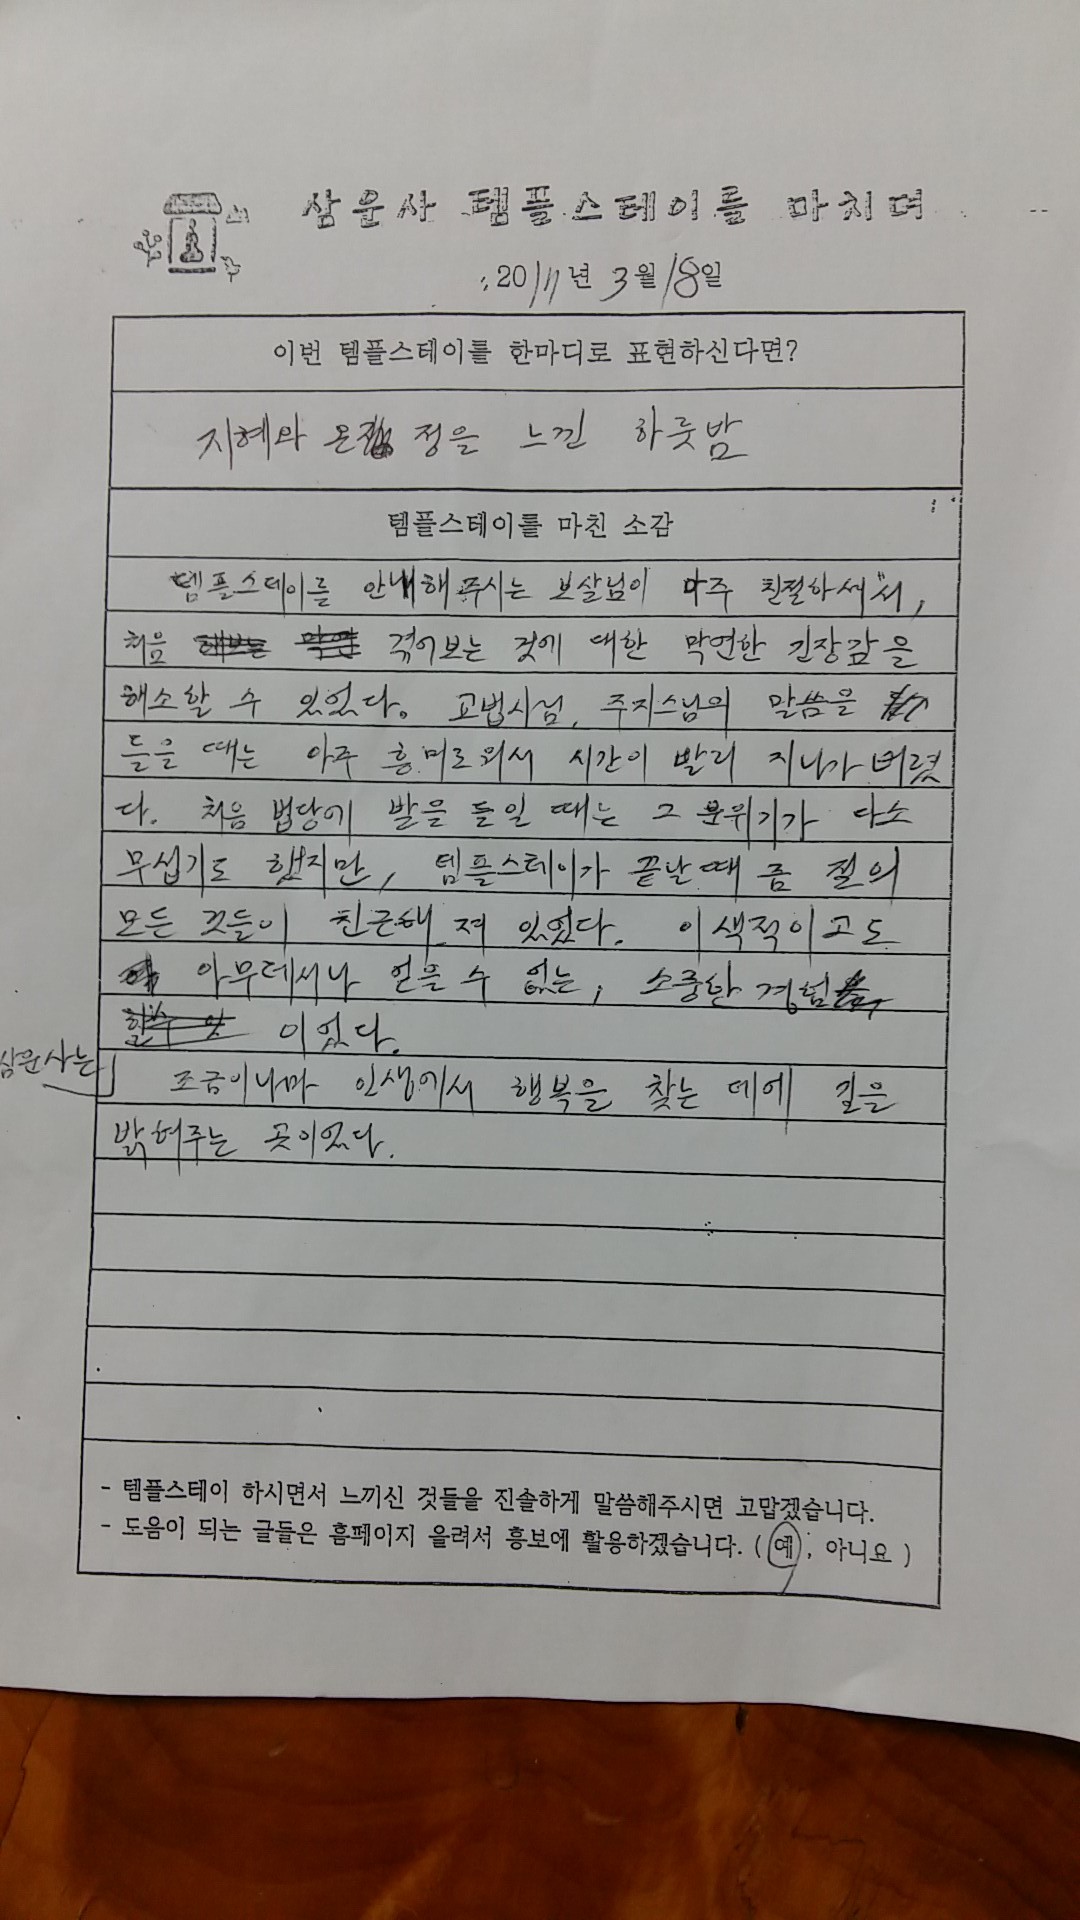 삼운사 템플스테이를 마치며
2011년 3월 18일
이번 템플스테이를 한마디로 표현하신다면?
지혜와 온정을 느낀 하룻밤
템플스테이를 마친 소감
템플스테이를 안내해 주시는 보살님이 아주 친절하셔서,
처음 겪어보는 것에 대한 막연한 긴장감을
해소할 수 있었다. 교법사님, 주지스님의 말씀을
들을 때는 아주 흥미로워서 시간이 빨리 지나가 버렸
다. 처음 법당에 발을 들일 때는 그 분위기가 다소
무섭기도 했지만, 템플스테이가 끝날 때 쯤 절의
모든 것들이 친근해 져 있었다. 이색적이고도
아무데서나 얻을 수 없는, 소중한 경험
이었다.
삼운사는 조금이나마 인생에서 행복을 찾는 데에 길을
밝혀주는 곳이었다.
- 템플스테이 하시면서 느끼신 것들을 진솔하게 말씀해주시면 고맙겠습니다.
- 도움이 되는 글들은 홈페이지 올려서 홍보에 활용하겠습니다. ( 예, 아니요 )